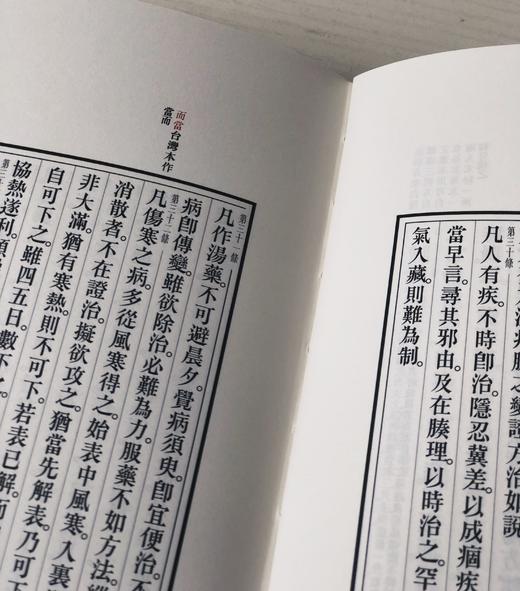 病脈之變
方治如說
第三十條
凡人有疾。不時即治。隱忍冀差。以成痼疾
當早言。尋其邪由。及在腠理。以時治之。罕
氣入藏。則難為制。
而當台灣本作
當而
第三十一條
凡作湯藥。不可避晨夕。覺病須臾。即宜便治。不
病即傳變。雖欲除治。必難為力。服藥不如方法。
第三十二條
凡傷寒之病。多從風寒得之。始表中風寒。入裏
消散者。不在證治。擬欲攻之。猶當先解表。乃可下
非大滿。猶有寒熱。則不可下。若表已解。而
自可下之。雖四五日。數下之。
協熱遂利。